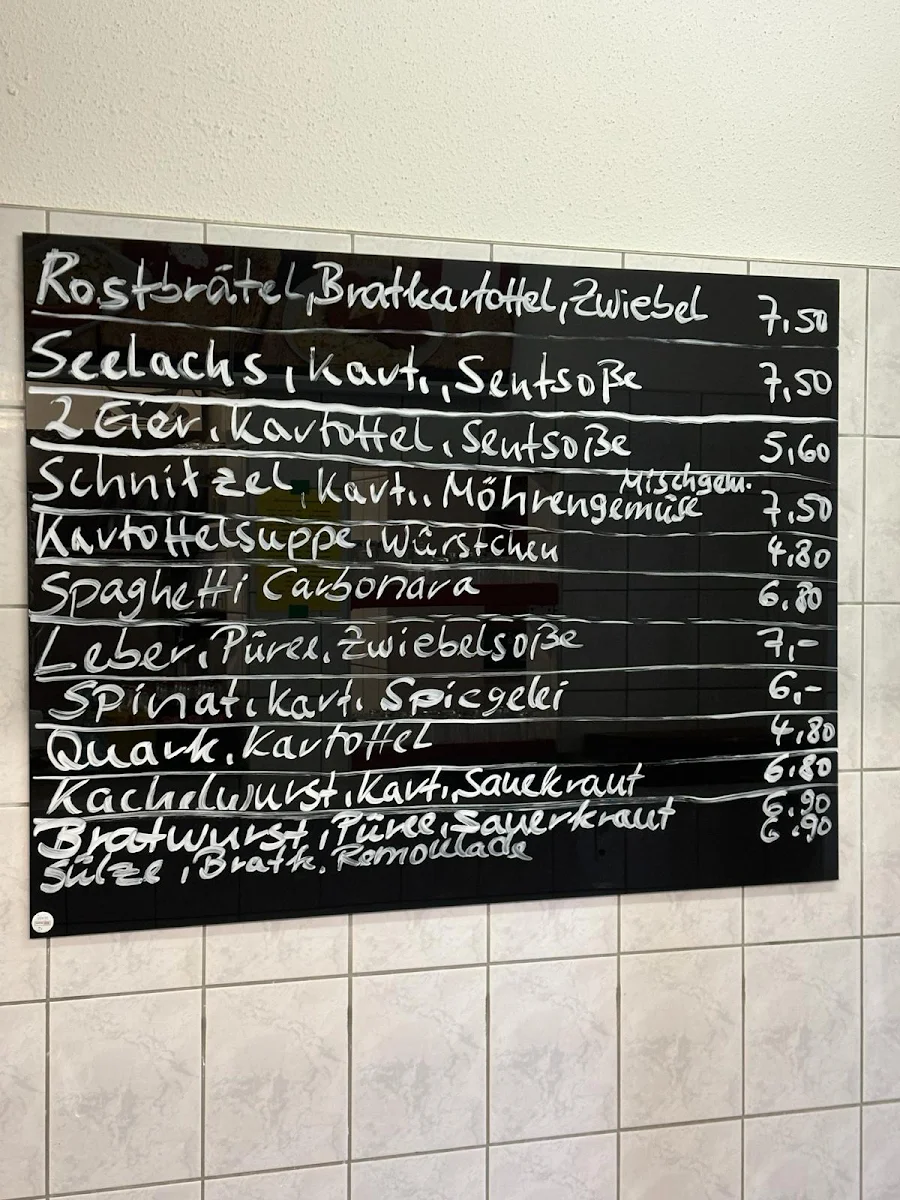 Rostbrätel, Bratkartoffel, Zwiebel 7,50
Seelachs, Kart., Senfsoße 7,50
2 Eier, Kartoffel, Senfsoße 5,60
Mischgem.
Schnitzel, Kart., Möhrengemüse 7,50
Kartoffelsuppe, Würstchen 4,80
Spaghetti Carbonara 6,80
Leber, Püree, Zwiebelsoße 7,-
Spinat, Kart. Spiegelei 6,-
Quark, Kartoffel 4,80
Kachelwurst, Kart., Sauekraut 6,80
Bratwurst, Püree, Sauerkraut 6,90
Sülze, Bratk. Remoulade 6,90